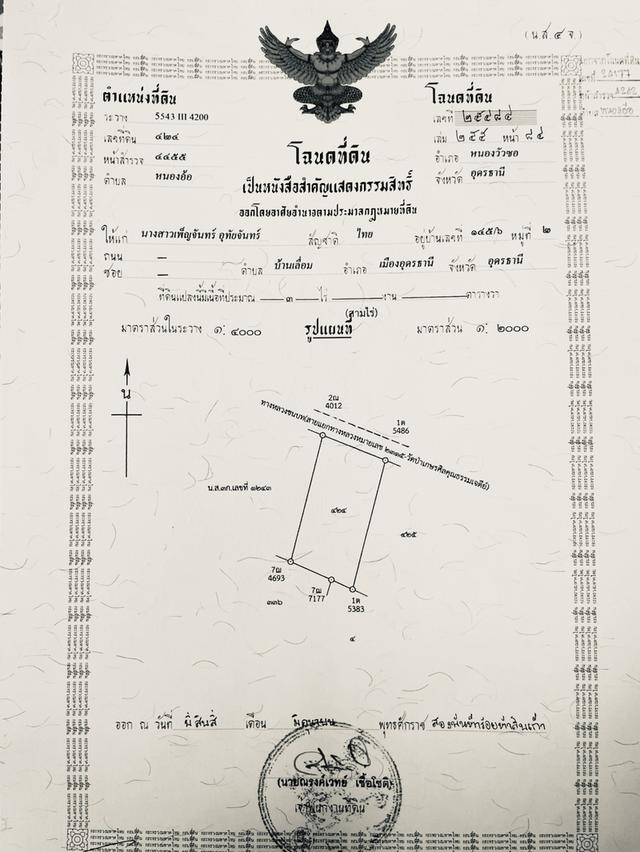 (น.ส. ๔ จ.)
ตำแหน่งที่ดิน
ระวาง 5543 III 4200
เลขที่ดิน ๔๒๔
หน้าสำรวจ ๔๔๕๕
ตำบล หนองอ้อ
โฉนดที่ดิน
เลขที่ ๒๕๕๘๔
เล่ม ๒๕๕ หน้า ๘๔
อำเภอ หนองวัวซอ
จังหวัด อุดรธานี
โฉนดที่ดิน
เป็นหนังสือสำคัญแสดงกรรมสิทธิ์
ออกโดยอาศัยอำนาจตามประมวลกฎหมายที่ดิน
ให้แก่ นางสาวเพ็ญจันทร์ อุทัยจันทร์ สัญชาติ ไทย อยู่บ้านเลขที่ ๑๔๕/๖ หมู่ที่ ๒
ถนน —
ซอย — ตำบล บ้านเลื่อม อำเภอ เมืองอุดรธานี จังหวัด อุดรธานี
ที่ดินแปลงนี้มีเนื้อที่ประมาณ ๓ ไร่ — งาน — ตารางวา
(สามไร่)
มาตราส่วนในระวาง ๑: ๔๐๐๐ รูปแผนที่ มาตราส่วน ๑: ๒๐๐๐
น
2ฌ
4012
1ต
5486
ทางหลวงชนบท(สายแยกทางหลวงหมายเลข ๒๓๑๕-วัดป่าเกษรศีลคุณธรรมเจดีย์)
น.ส.๓ก.เลขที่ ๑๒๔๓
๔๒๔
๔๒๕
7ฌ
4693
7ฌ
7177
1ต
5383
๓๓๖
๔
ออก ณ วันที่ ยี่สิบสี่ เดือน มิถุนายน พุทธศักราช สองพันห้าร้อยห้าสิบเก้า
(นายณรงค์เวทย์ เชื้อโชติ)
เจ้าพนักงานที่ดิน